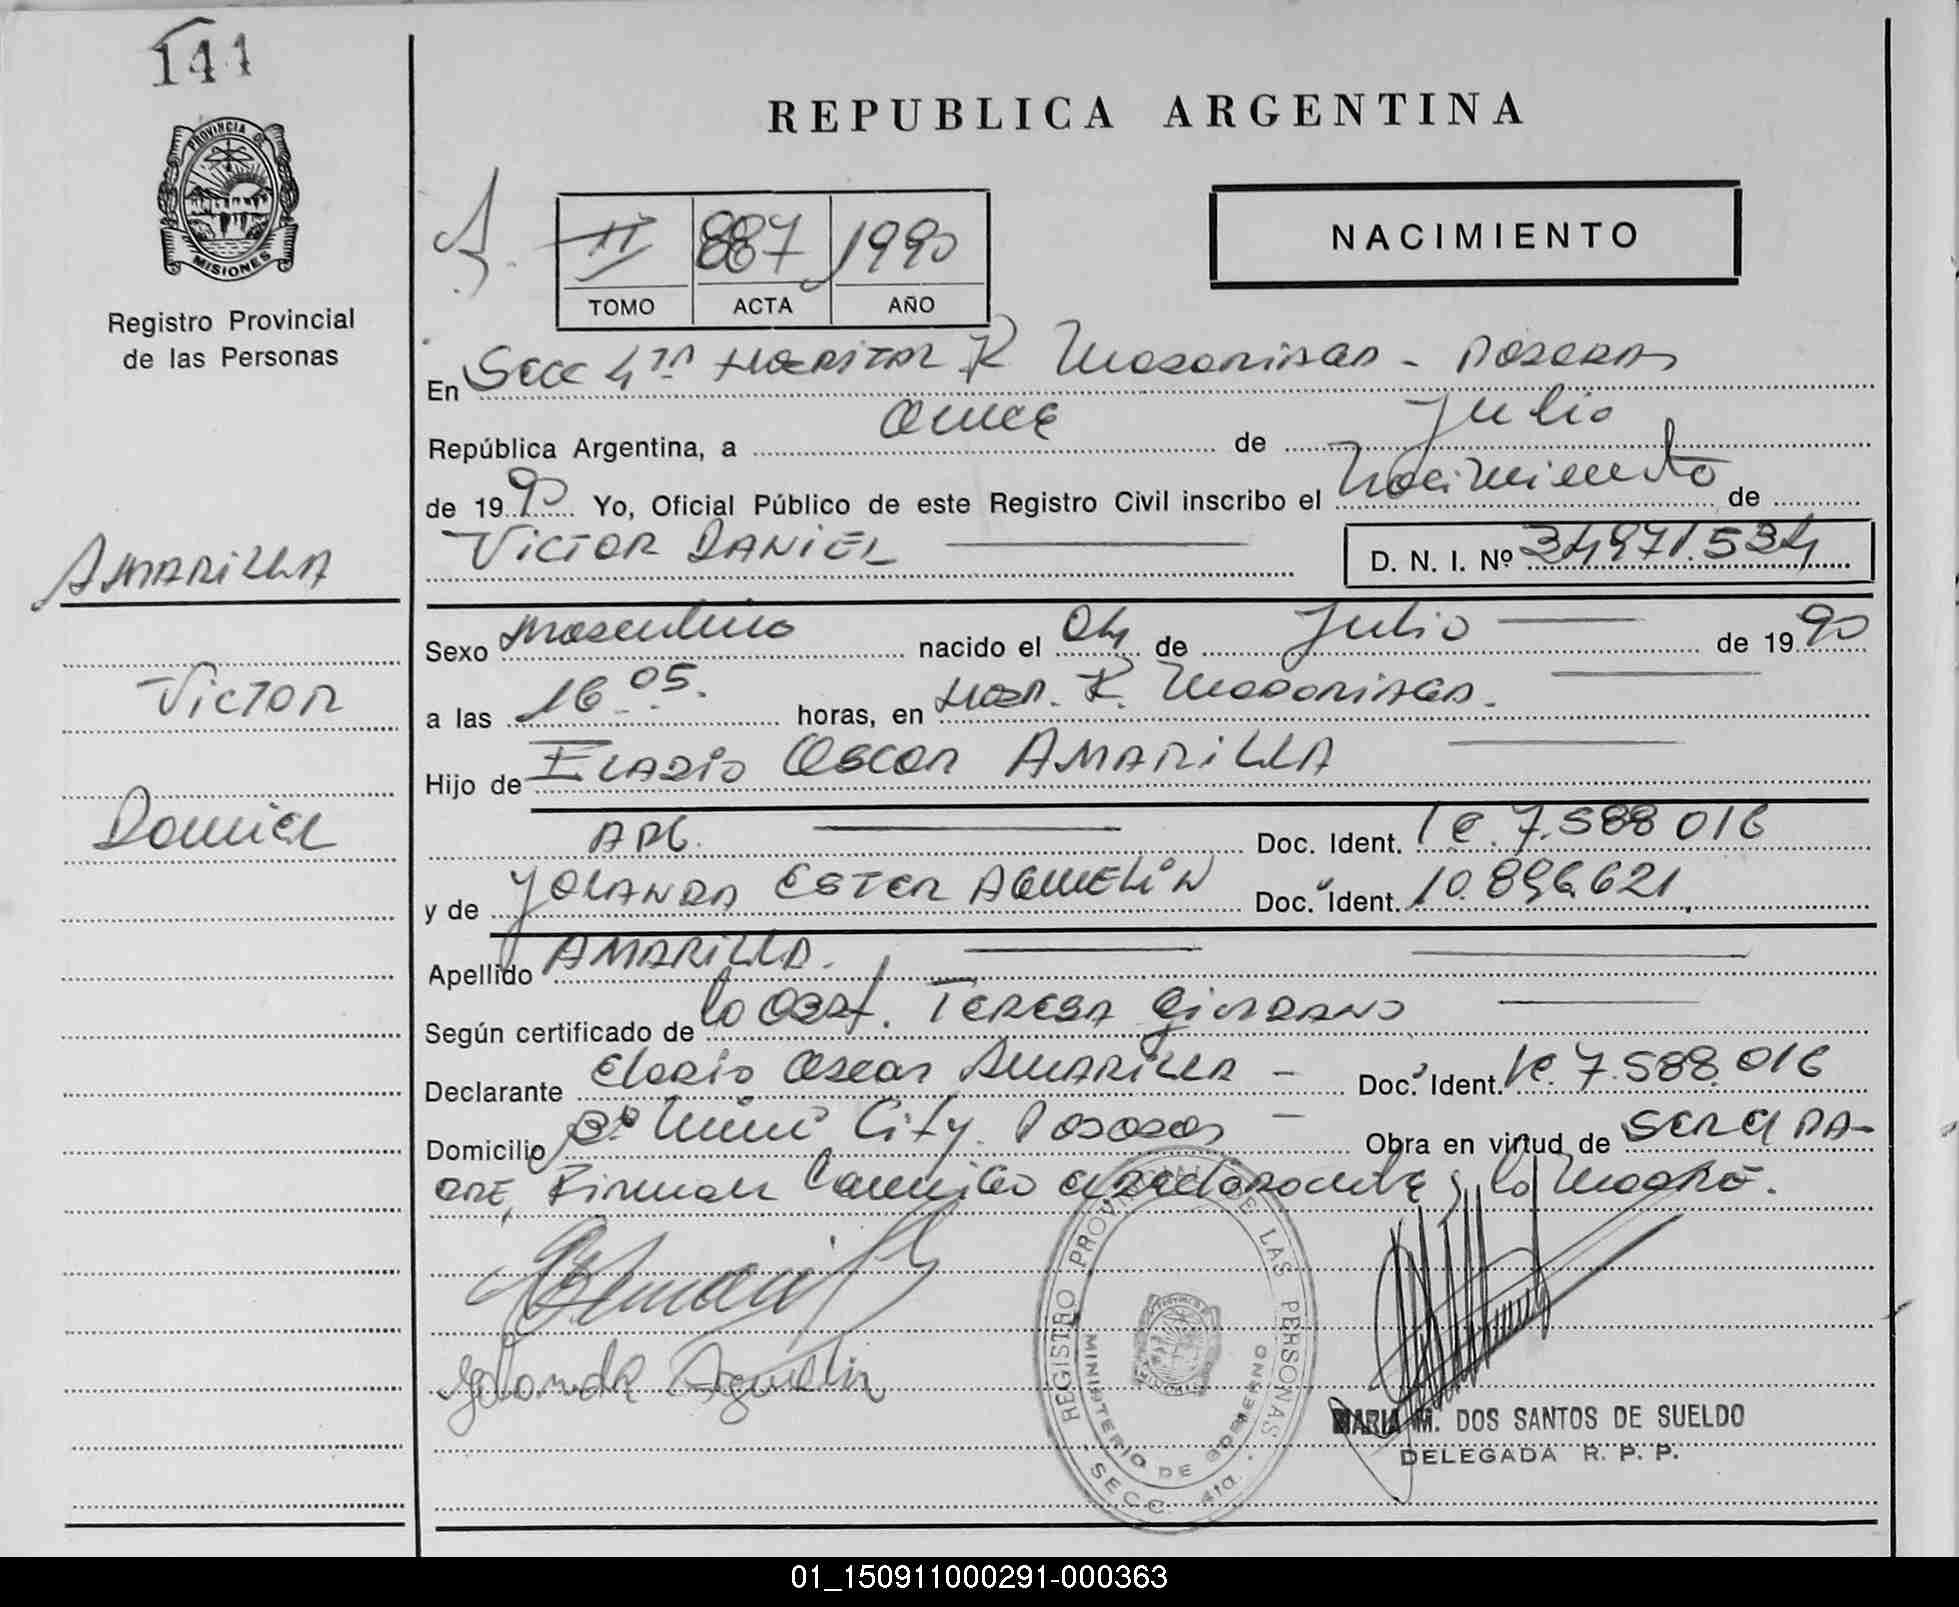 144
REPUBLICA ARGENTINA
PROVINCIA DE
MISIONES
Registro Provincial
de las Personas
II 887 1990
TOMO ACTA AÑO
NACIMIENTO
En Secc 4ta Hospital R Madariaga - Posadas
República Argentina, a once de Julio
de 1990 Yo, Oficial Público de este Registro Civil inscribo el Nacimiento de
VICTOR DANIEL D. N. I. Nº 34971.534
AMARILLA
Victor
Daniel
Sexo masculino nacido el 04 de Julio de 1990
a las 16 05. horas, en Hosp. R. Madariaga.
Hijo de Eladio Oscar AMARILLA
ARG. Doc. Ident. le. 7.588 016
y de YOLANDA ESTER AQUELIN Doc. Ident. 10.896.621.
Apellido AMARILLA.
Según certificado de la Obst. TERESA GIORDANO
Declarante Eladio Oscar AMARILLA - Doc. Ident. le. 7.588.016
Domicilio Bº Mini City. Posadas - Obra en virtud de SER el PA-
DRE, Firman también declarante y la madre.
Yolanda Aquelin
REGISTRO PROVINCIAL DE LAS PERSONAS
MINISTERIO DE GOBIERNO
SECC. 4ta.
MARIA M. DOS SANTOS DE SUELDO
DELEGADA R. P. P.
01_150911000291-000363